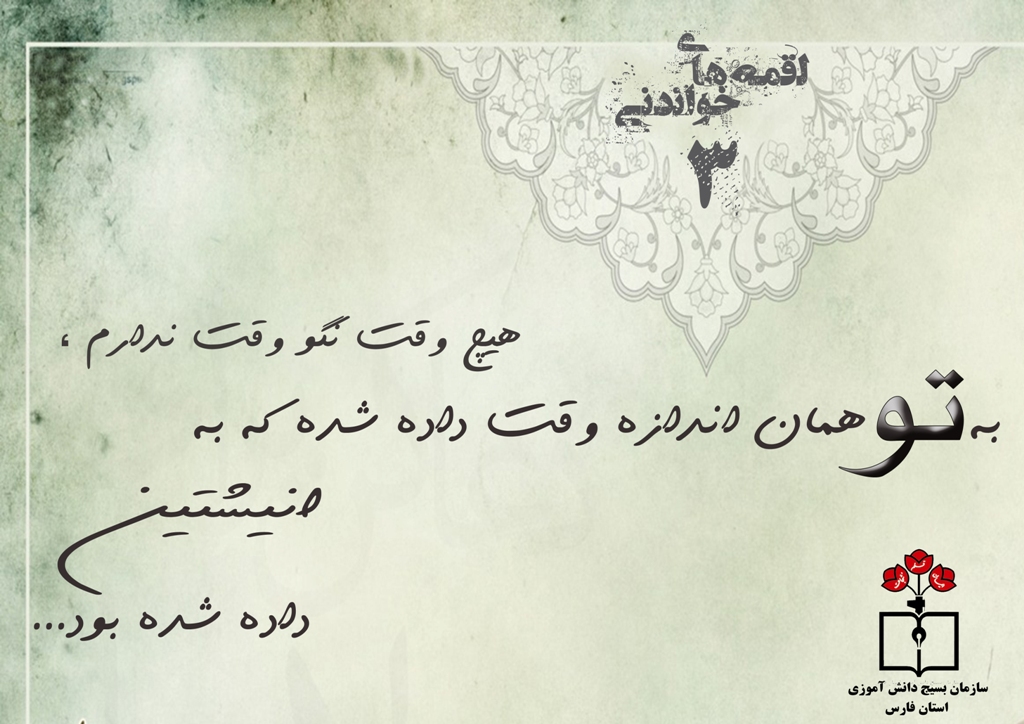 لقمه های
خواندنی
۳
هیچ وقت نگو وقت ندارم ،
به تو همان اندازه وقت داده شده که به
انیشتین
داده شده بود...
سازمان بسیج دانش آموزی
استان فارس